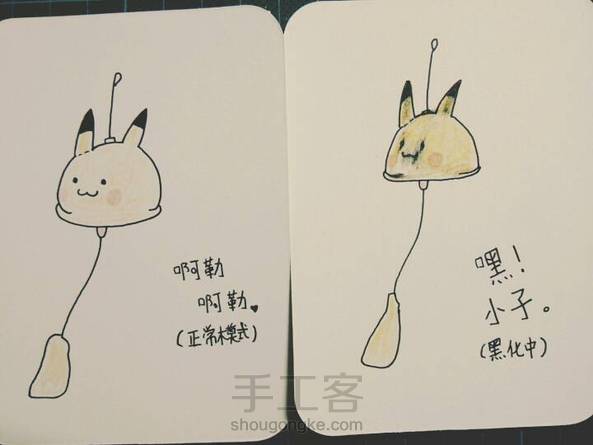 啊勒
啊勒
(正常模式)
嘿！
小子。
(黑化中)
手工客
shougongke.com